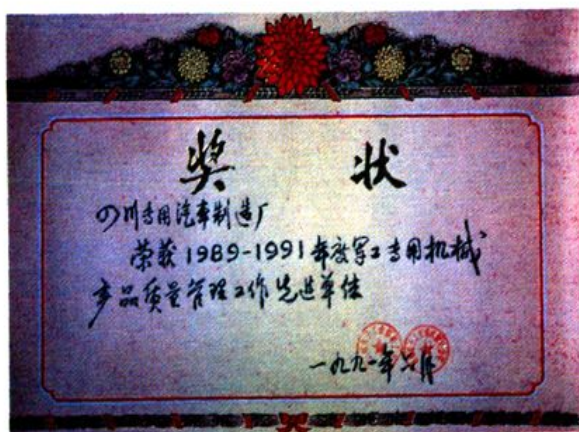 奖状
四川专用汽车制造厂
荣获1989-1991年度军工专用机械
产品质量管理工作先进单位
一九九一年六月